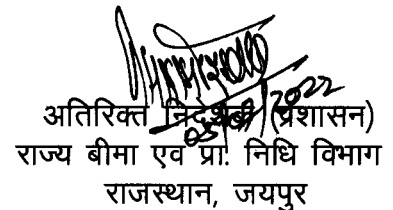 अतिरिक्त निदेशक (प्रशासन)
राज्य बीमा एवं प्रा. निधि विभाग
राजस्थान, जयपुर